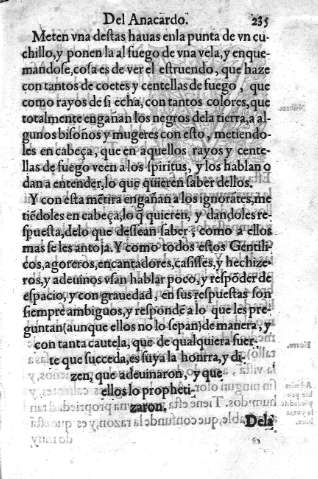 Del Anacardo. 235
Meten vna destas hauas enla punta de vn cu-
chillo, y ponen la al fuego de vna vela, y enque-
mandose, cosa es de ver el estruendo, que haze
con tantos de coetes y centellas de fuego, que
como rayos de si echa, con tantos colores, que
totalmente engañan los negros dela tierra, a al-
gunos bisoños y mugeres con esto, metiendo-
les en cabeça, que en aquellos rayos y cente-
llas de fuego veen a los spiritus, y los hablan o
dan a entender, lo que quieren saber dellos.
Y con esta mẽtira engañan a los ignorãtes, me
tiẽdoles en cabeça, lo q̃ quieren, y dandoles re-
spuesta, delo que dessean saber, como a ellos
mas se les antoja. Y como todos estos Gentili-
cos, agoreros, encantadores, casisses, y hechize-
ros, y adeuinos vsan hablar poco, y respõder de
espacio, y con grauedad, en sus respuestas son
siempre ambiguos, y respondẽ a lo que les pre-
guntan (aunque ellos no lo sepan) de manera, y
con tanta cautela, que de qualquiera suer-
te que succeda, es suya la honrra, y di-
zen, que adeuinaron, y que
ellos lo propheti-
zaron.
Dela